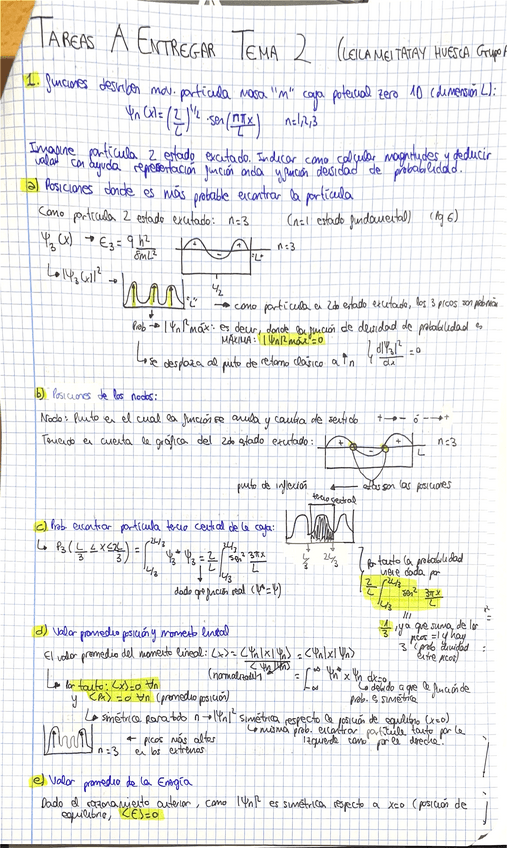 TAREAS A ENTREGAR TEMA 2 (LEILA MEITATAY HUESCA Grupo A
1. funciones describen mov. partícula masa "m" caja potencial zero 1D (dimensión L):
Ψn(x)=(2/L)^1/2 · sen(nπx/L) n=1,2,3
Imagine partícula 2 estado excitado. Indicar como calcular magnitudes y deducir
valor con ayuda representación función onda y función desidad de probabilidad.
a) Posiciones donde es más probable encontrar la partícula
Como partícula 2 estado excitado: n=3 (n=1 estado fundamental) (Pág 6)
Ψ3(x) → E3 = 9h²/8mL² n=3
"L"
L/2
↳ |Ψ3(x)|² → "L" → como partícula en 2do estado excitado, los 3 picos son
Prob → |Ψn|² máx: es decir, donde la función de densidad de probabilidad es
MÁXIMA: |Ψn|² máx'=0
↳ se desplaza al puto de retorno clásico a ↑n ↳ d|Ψ3|²/dx = 0
b) Posiciones de los nodos:
Nodo: Punto en el cual la función se anula y cambia de sentido + → - ó - → +
Teniendo en cuenta la gráfica del 2do estado excitado: n=3
L
punto de inflexión ← estas son las posiciones
c) Prob encontrar partícula tercio central de la caja:
tercio central
↳ P3(L/3 ≤ x ≤ 2L/3) = ∫L/3 2L/3 Ψ3* Ψ3 = 2/L ∫L/3 2L/3 sen² 3πx/L
L/3 2L/3
dado que función real (Ψ*=Ψ)
por tanto la probabilidad
viene dada por
2/L ∫L/3 2L/3 sen² 3πx/L
1/3 ya que suma de los
picos =1 y hay
3 (prob dividida
entre picos)
d) Valor promedio posición y momento lineal
El valor promedio del momento lineal: <x> = <Ψn|x|Ψn>/<Ψn|Ψn> = <Ψn|x|Ψn>
(normalizada) = ∫-∞ ∞ Ψn* x Ψn dx=0
↳ Por tanto: <x>=0 ∀n ↳ debido a que la función de
y <Px>=0 ∀n (promedio posición) prob. es simétrica
↳ simétrica para todo n → |Ψn|² simétrica respecto la posición de equilibrio (x=0)
↳ misma prob. encontrar partícula tanto por la
izquierda como por la derecha.
n=3 ← picos más altos
en los extremos
e) Valor promedio de la Energía
Dado el razonamiento anterior, como |Ψn|² es simétrica respecto a x=0 (posición de
equilibrio, <E>=0